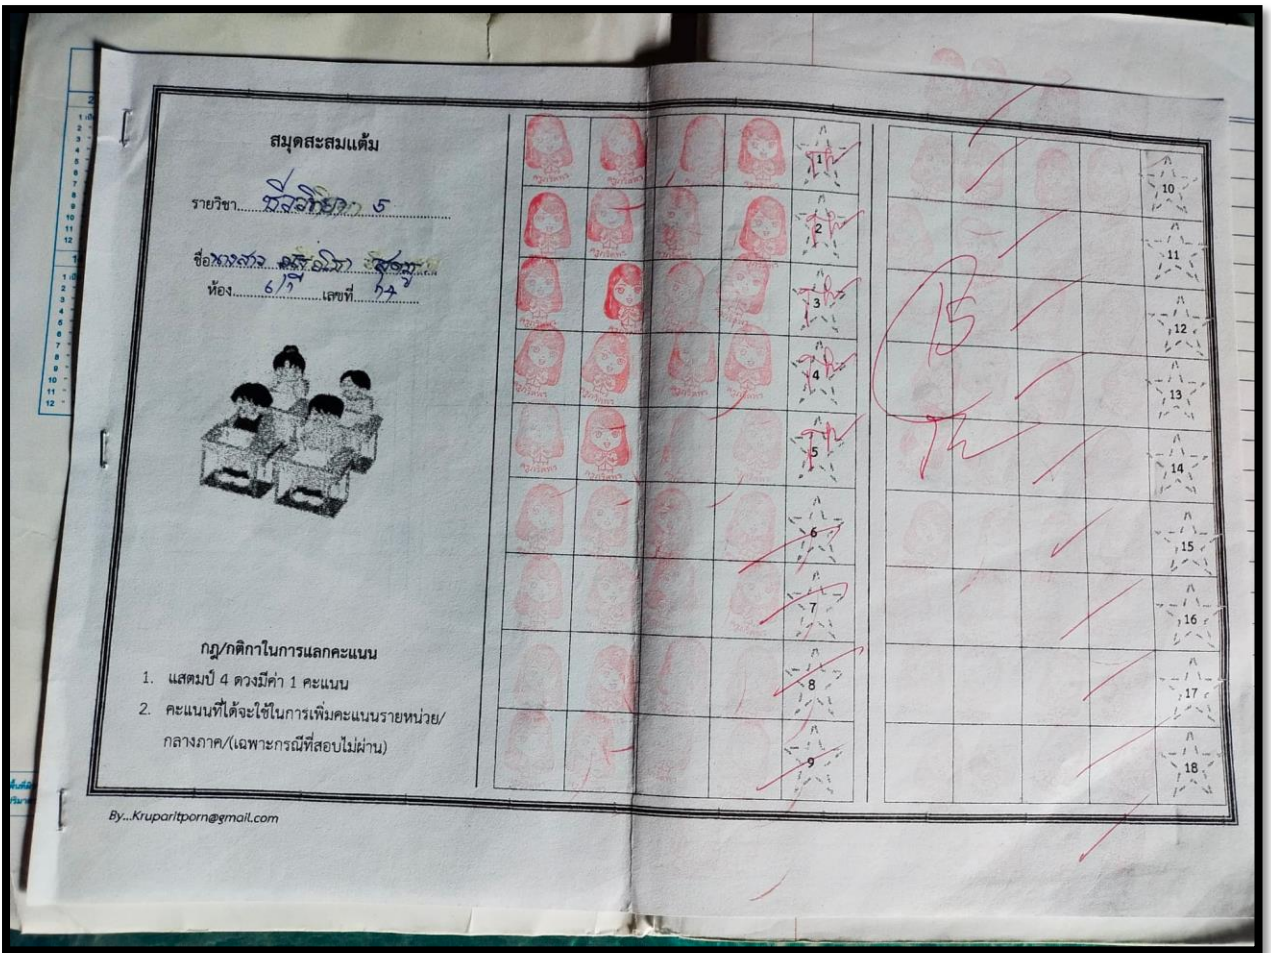 สมุดสะสมแต้ม
รายวิชา ชีววิทยา 5
ชื่อ นางสาว
ห้อง 6/1 เลขที่ 14
กฎ/กติกาในการแลกคะแนน
1. แสตมป์ 4 ดวงมีค่า 1 คะแนน
2. คะแนนที่ได้จะใช้ในการเพิ่มคะแนนรายหน่วย/
กลางภาค/(เฉพาะกรณีที่สอบไม่ผ่าน)
By...Kruparitporn@gmail.com
1
2
3
4
5
6
7
8
9
15
10
11
12
13
14
15
16
17
18